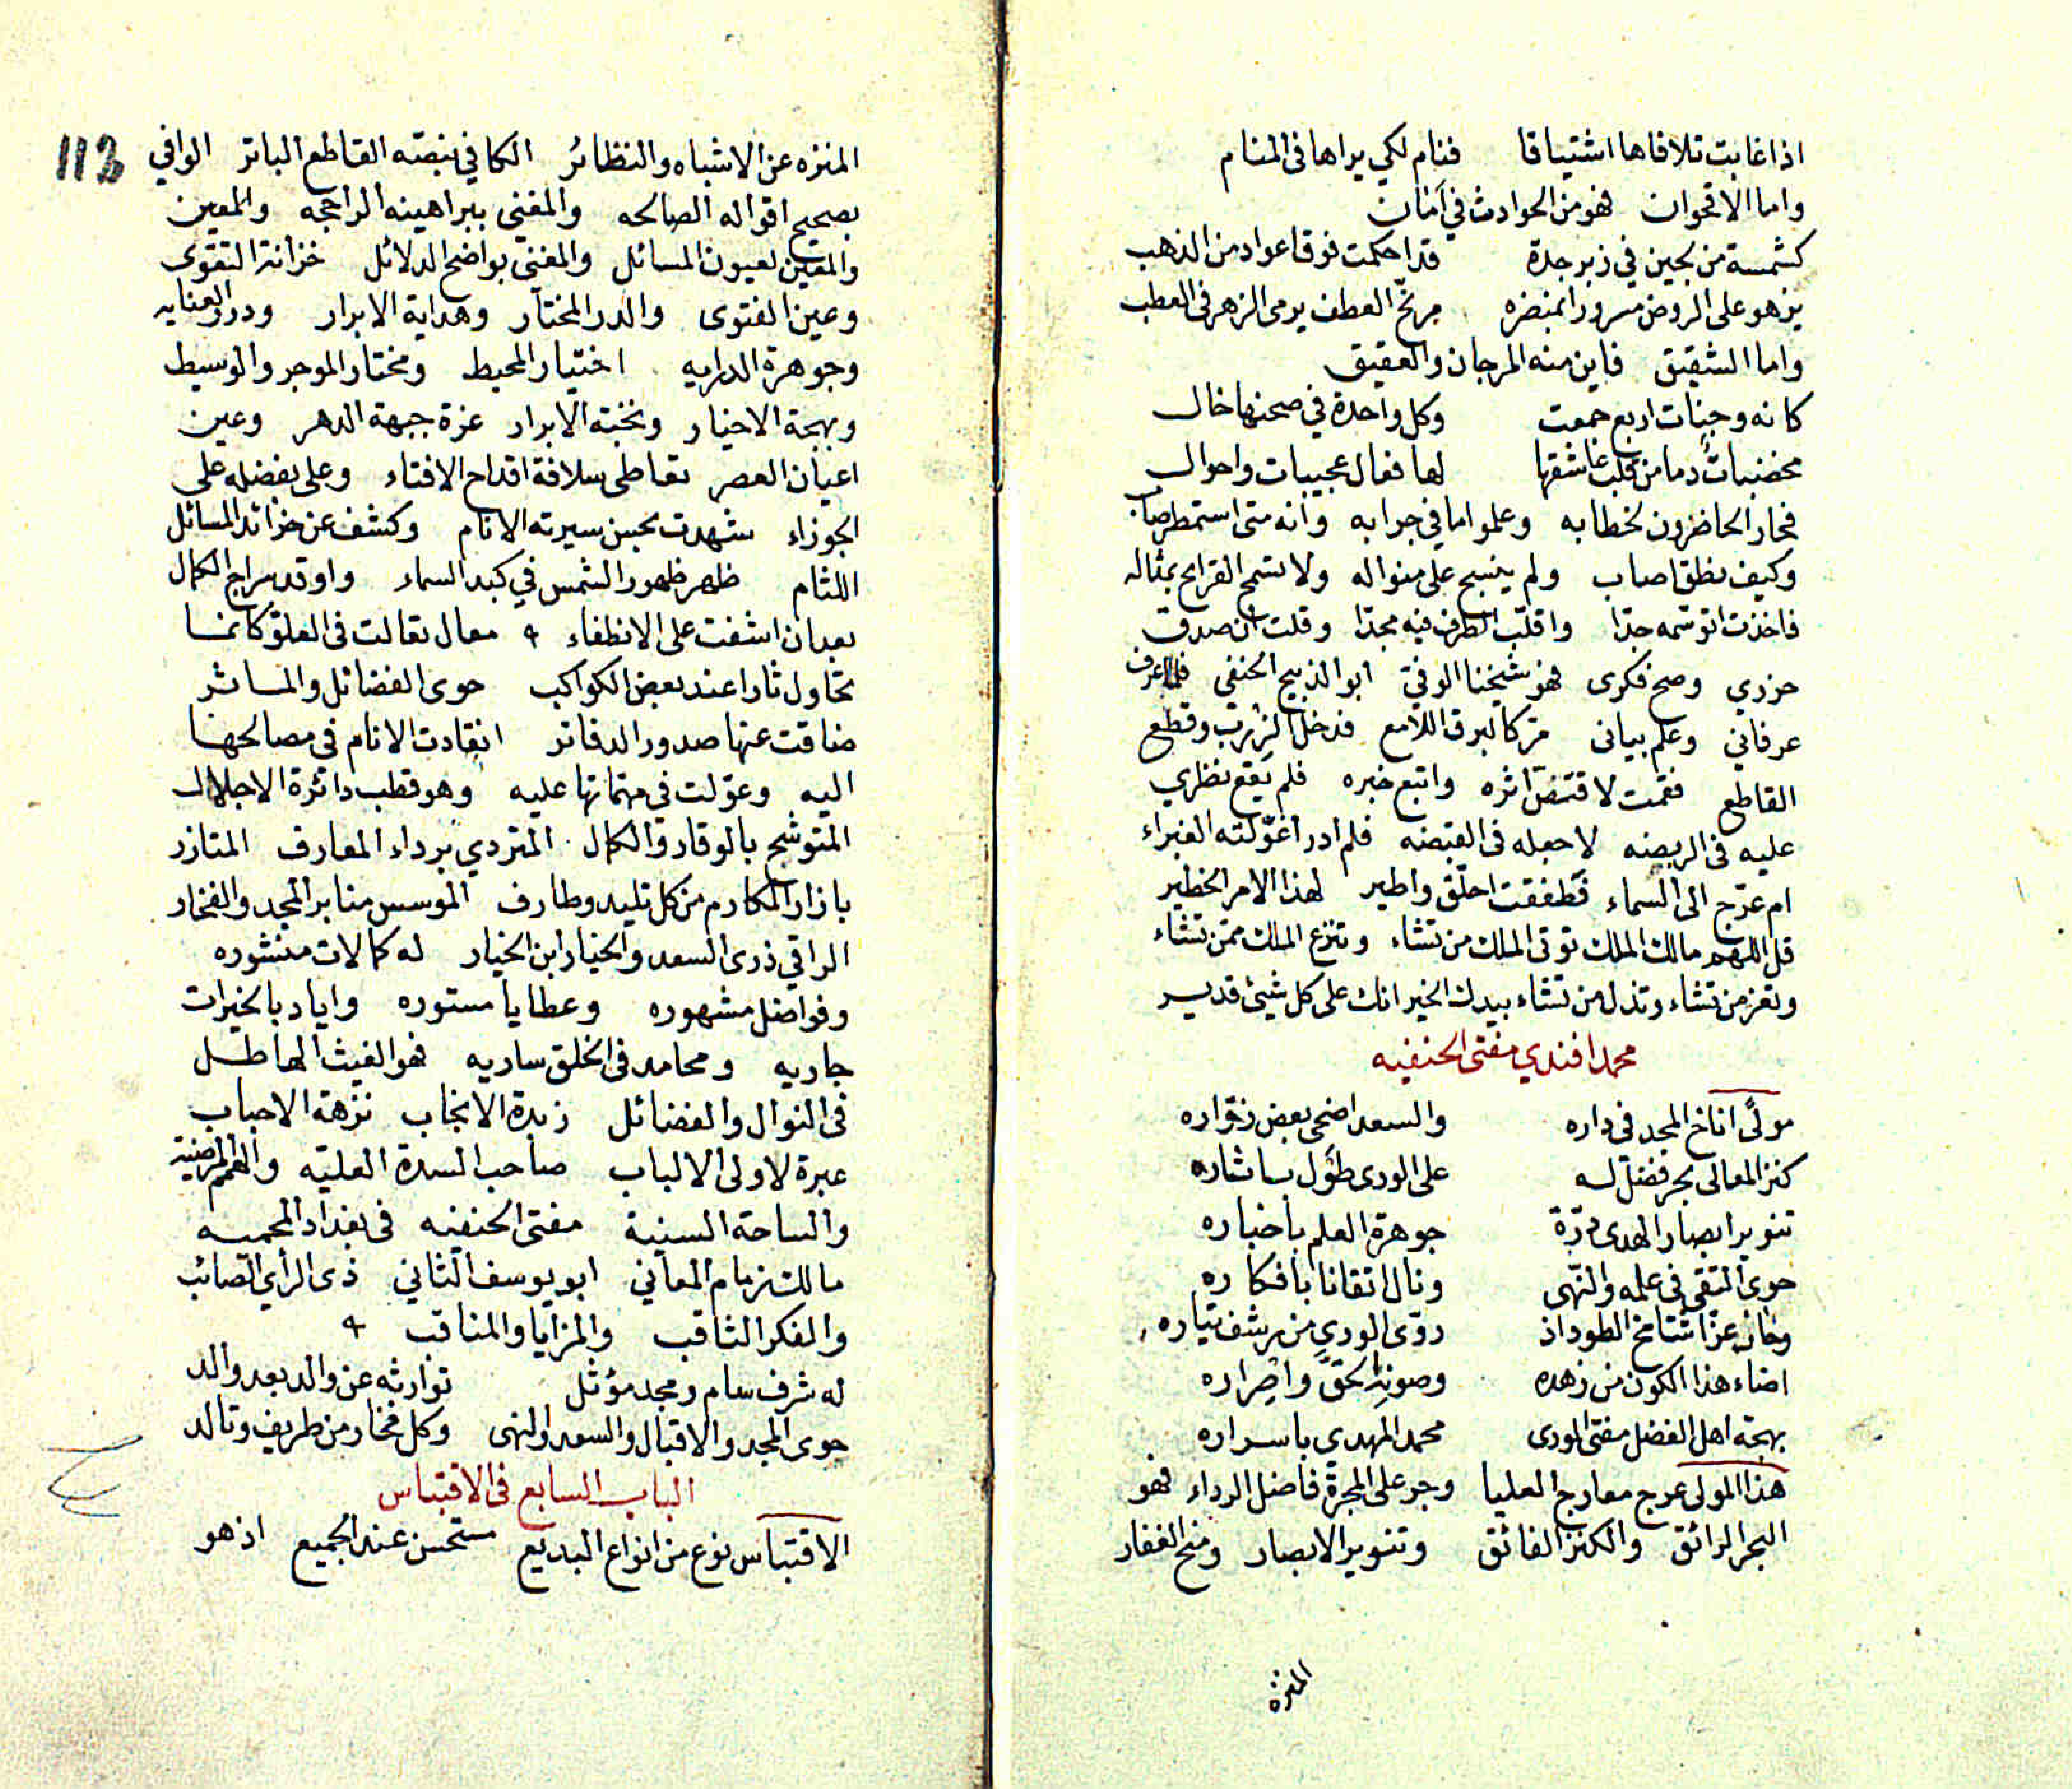 اذا غابت تلافاها اشتياقا فنام لكي يراها فى المنام
واما الاقحوان فهو من الحوادث في امان
كشمسة من لجين في زبرجدة قد احكمت فوق اعواد من الذهب
يزهو على الروض مسرورا بمنضره مرنح العطف يرمى الزهر فى العطب
واما الشقيق فاين منه المرجان والعقيق
كانه وجنات اربع جمعت وكل واحدة في صحنها خال
مخضبات دما من قلب عاشقها لها فعال عجيبات واحوال
فحار الحاضرون لخطابه وعلموا ما في جرابه وانه متى استمطر صاب
وكيف نطق اصاب ولم ينسج على منواله ولا تسمح القرائح بمثاله
فاخذت اتوسمه جدا واقلب الطرف فيه مجدا وقلت ان صدق
حزري وصح فكرى فهو شيخنا الوفيّ ابو الذبيح الحنفي فلما عرف
عرفاني وعلم بياني مرّ كالبرق اللامع فدخل الزرب وقطع
القاطع فقمت لاقتفىّ اثره واتبع خبره فلم يقع نظري
عليه فى الربضه لاجعله فى القبضه فلم ادر اغوّلته الغبراء
ام عرّج الى السماء فطفقت احلّق واطير لهذا الامر الخطير
قل اللهم مالك الملك توتى الملك من تشاء وتنزع الملك ممن تشاء
وتعز من تشاء وتذل من تشاء بيدك الخير انك على كل شيئ قدير
محمد افندي مفتى الحنفيه
مولًى اناخ المجد فى داره والسعد اضحى بعض زوّاره
كنز المعالى بحر فضل له على الورى طوَل باشاره
تنوير ابصار الهدى درّة جوهرة العلم باخباره
حوى التقى فى علمه والنّهى ونال اتقانا بافكاره
وحاز عزّا شامخ الطود اذ روّى الورى من رشف تياره
اضاء هذا الكون من زهده وصونه الحقّ واضراره
بهجة اهل الفضل مفتى الورى محمد المهدي باسراره
هذا المولى عرج معارج العليا وجر على المجرة فاضل الرداء فهو
البحر الرائق والكنز الفائق وتنوير الابصار ومنح الغفار
المنزه
113
المنزه عن الاشباه والنظائر الكافي بنصّه القاطع الباتر الوافي
بصحيح اقواله الصالحه والمغنى ببراهينه الراجحه والمعين
والمعين لعيون المسائل والمغنى بواضح الدلائل خزانة التقوى
وعين الفتوى والدر المختار وهداية الابرار ودرر العنايه
وجوهرة الدرايه اختيار المحيط ومختار الموجر والوسيط
وبهجة الاخيار ونخبة الابرار غرة جبهة الدهر وعين
اعيان العصر تعاطى سلافة اقداح الافتاء وعلى بفضله على
الجوزاء شهدت بحسن سيرته الانام وكشف عن خرائد المسائل
اللثام ظهر ظهور الشمس في كبد السماء واوقد سراج الكمال
بعد ان اشفت على الانطفاء معال تعالت فى العلوّ كانما
تحاول ثارا عند بعض الكواكب حوى الفضائل والماثر
ضاقت عنها صدور الدفاتر انقادت الانام فى مصالحها
اليه وعوّلت فى مهماتها عليه وهو قطب دائرة الاجلال
المتوشح بالوقار والكمال المتردي برداء المعارف المتازر
بازار المكارم من كل تليد وطارف الموسس منابر المجد والفخار
الراقي ذرى السعد والخيار ابن الخيار له كمالات منشوره
وفواضل مشهوره وعطايا مستوره واياد بالخيرات
جاريه ومحامد فى الخلق ساريه فهو الغيث الهاطل
فى النوال والفضائل زبدة الانجاب نزهة الاحباب
عبرة لاولى الالباب صاحب السدة العليّه والهمم المرضية
والساحة السنية مفتى الحنفيه فى بغداد المحميه
مالك زمام المعاني ابو يوسف الثاني ذى الرأي الصائب
والفكر الثاقب والمزايا والمناقب
له شرف سام ومجد مؤثل توارثه عن والد بعد والد
حوى المجد والاقبال والسعد والنهى وكل فخار من طريف وتالد
الباب السابع فى الاقتباس
الاقتباس نوع من انواع البديع مستحسن عند الجميع اذ هو